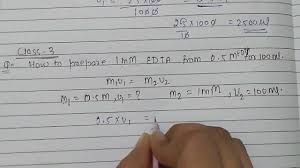 1000
25 × 1000 = 2500 ml
10
Class-3
Q- How to prepare 1mM EDTA from 0.5 M for 100ml.
M₁V₁ = M₂V₂
M₁ = 0.5M, V₁ = ? M₂ = 1mM, V₂ = 100ml
0.5 × V₁ =